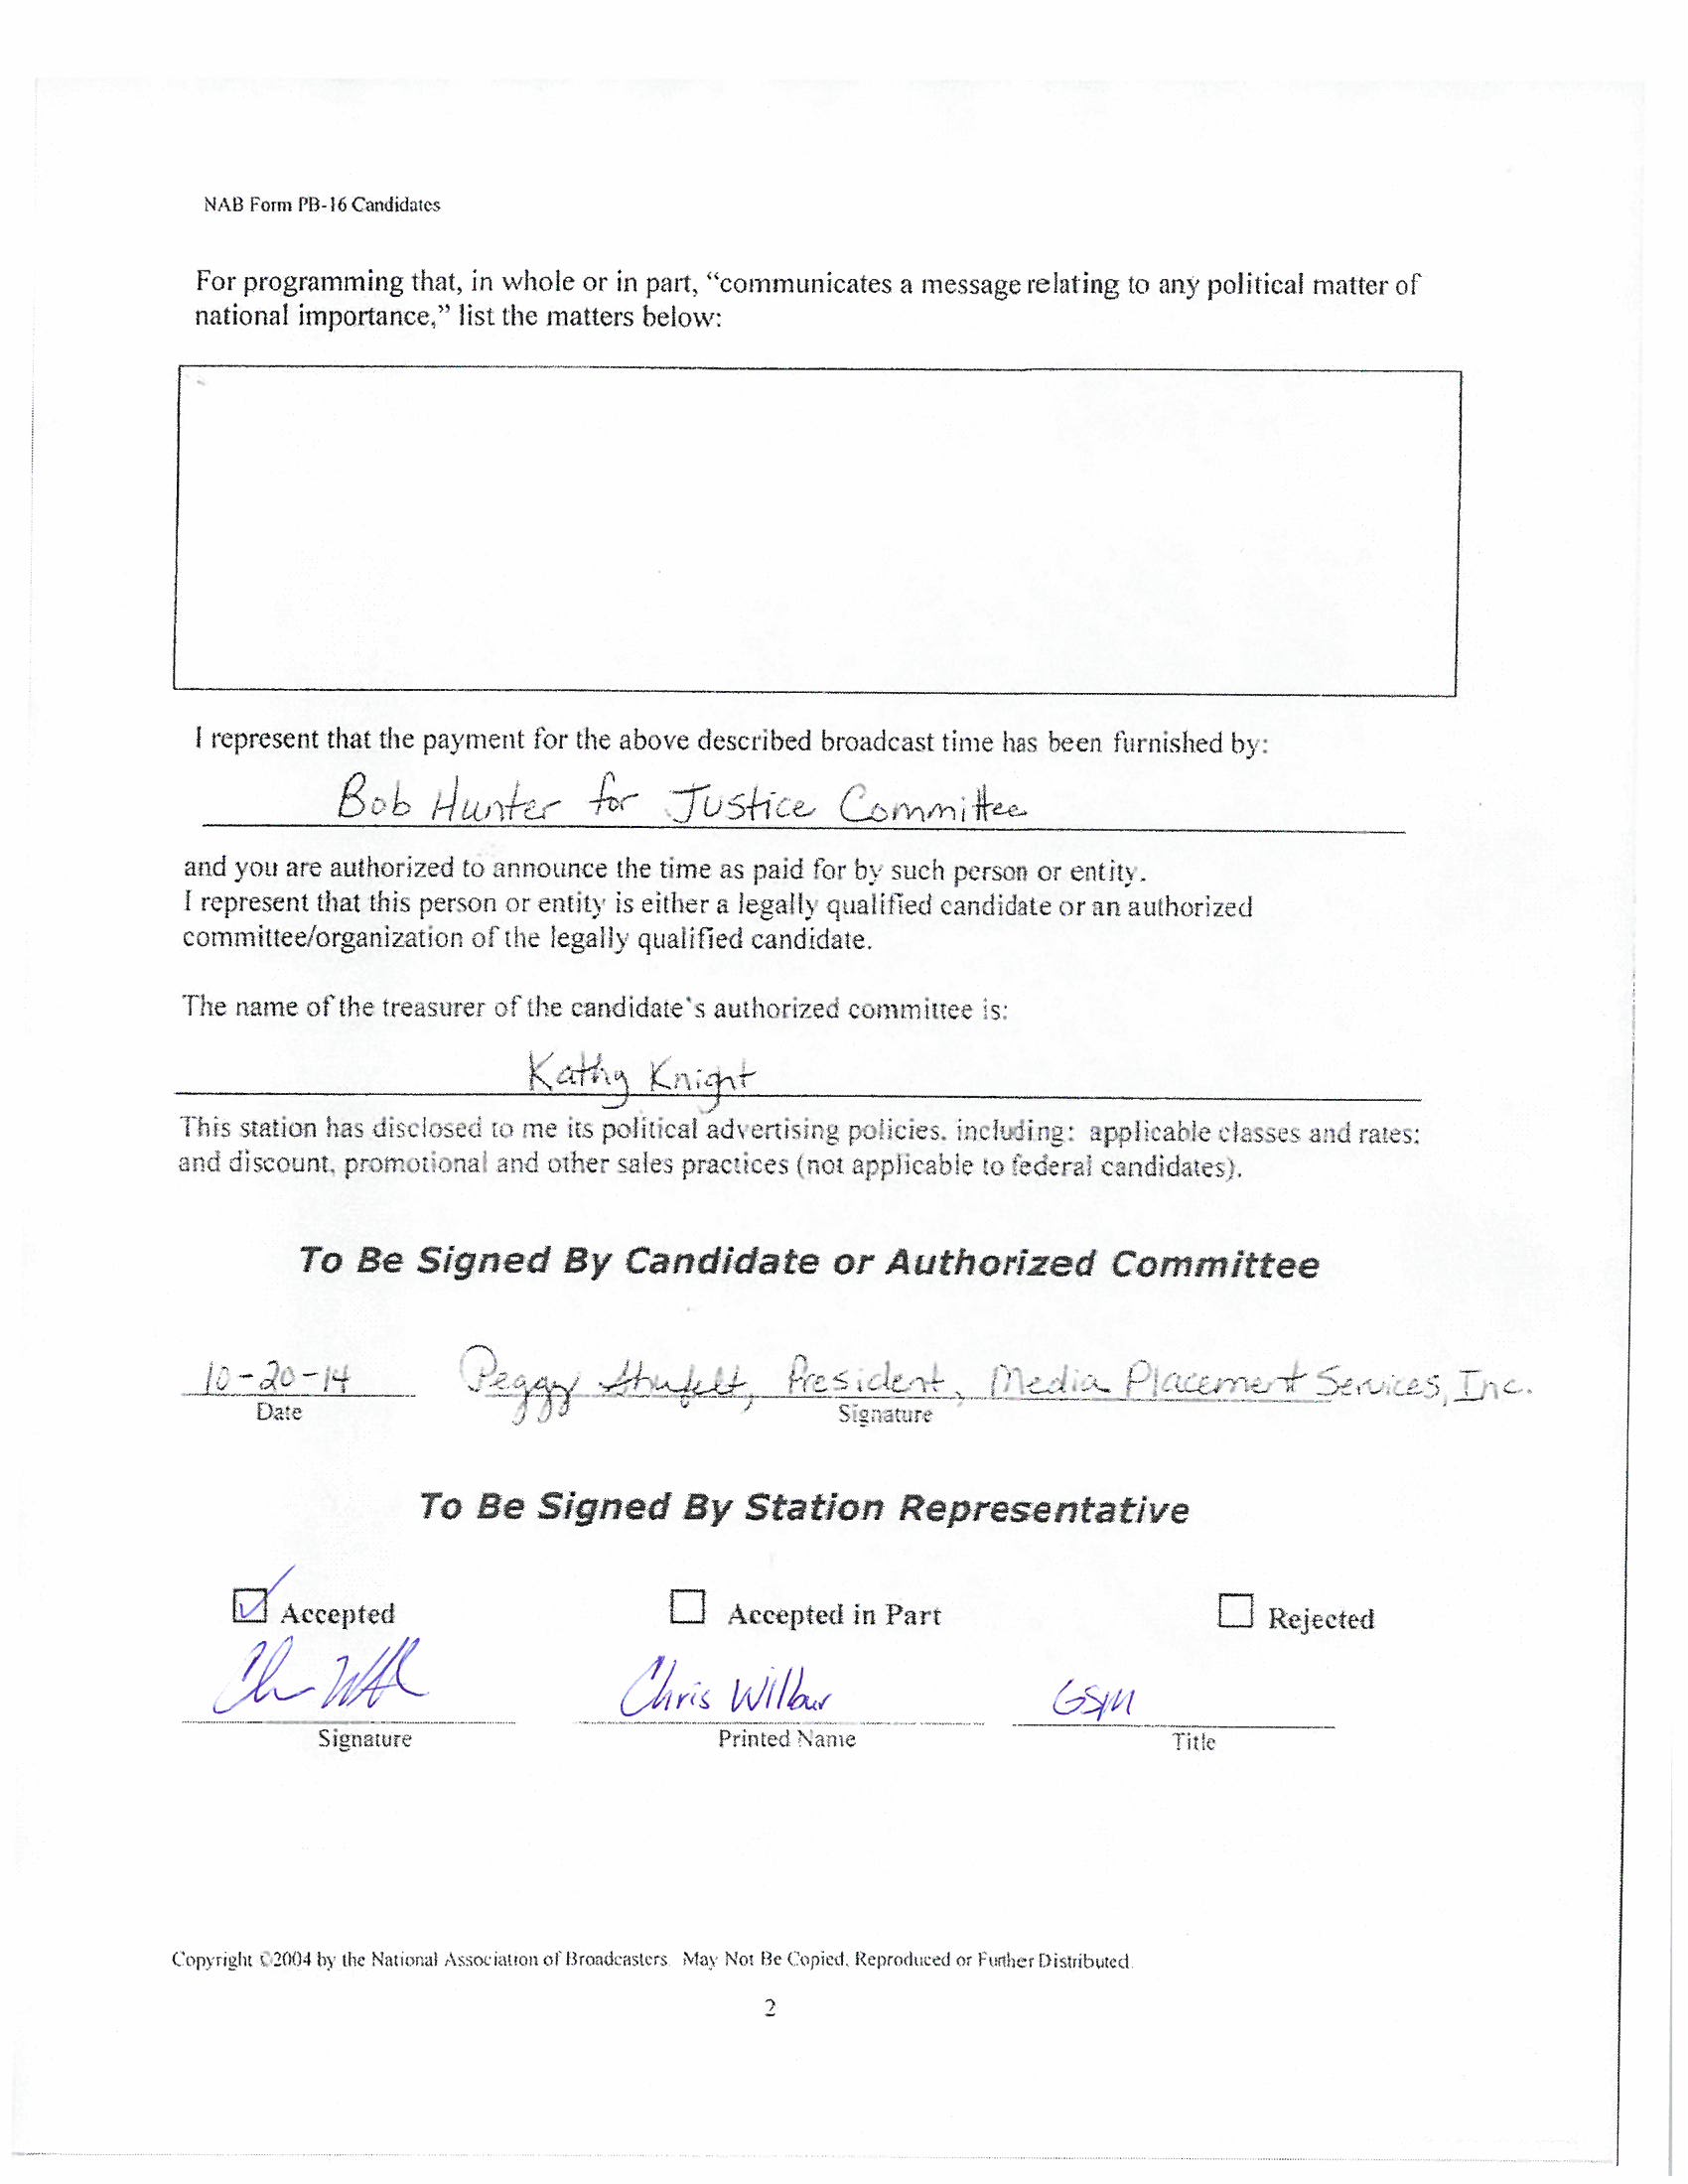 NAB Form PB-16 Candidates
For programming that, in whole or in part, “communicates a message relating to any political matter of
national importance,” list the matters below:
I represent that the payment for the above described broadcast time has been furnished by:
Bob Hunter for Justice Committee
and you are authorized to announce the time as paid for by such person or entity.
I represent that this person or entity is either a legally qualified candidate or an authorized
committee/organization of the legally qualified candidate.
The name of the treasurer of the candidate's authorized committee is:
Kathy Knight
This station has disclosed to me its political advertising policies, including: applicable classes and rates;
and discount, promotional and other sales practices (not applicable to federal candidates).
To Be Signed By Candidate or Authorized Committee
10-20-14 Peggy Shufelt, President, Media Placement Services, Inc.
Date Signature
To Be Signed By Station Representative
Accepted Accepted in Part Rejected
Chris Wilbur GSM
Signature Printed Name Title
Copyright ©2004 by the National Association of Broadcasters. May Not Be Copied, Reproduced or Further Distributed.
2